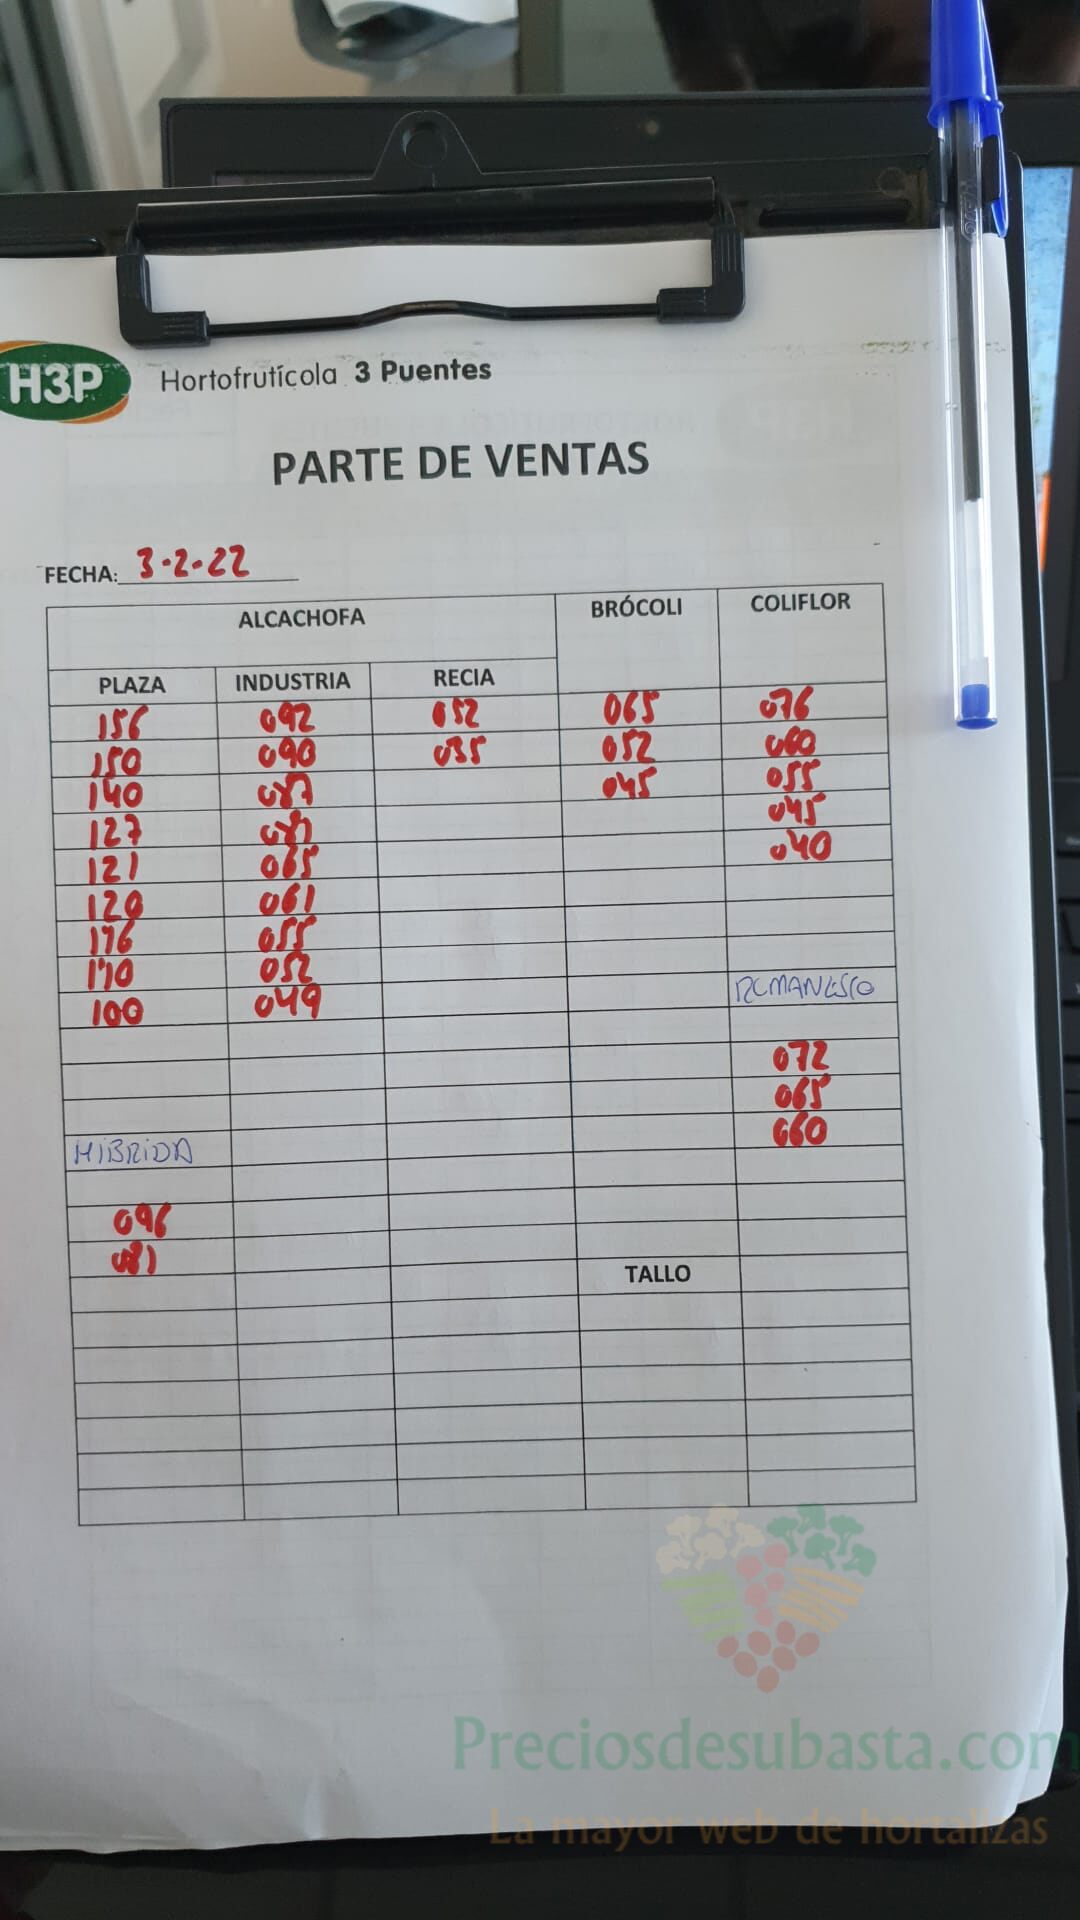 H3P Hortofrutícola 3 Puentes
PARTE DE VENTAS
FECHA: 3-2-22
ALCACHOFA BRÓCOLI COLIFLOR
PLAZA INDUSTRIA RECIA
156 092 052 065 076
150 090 035 052 060
140 087 045 055
127 081 045
121 065 040
120 061
116 055
110 052
100 049 ROMANESCO
072
065
060
HIBRIDA
096
081
TALLO
Preciosdesubasta.com
La mayor web de hortalizas